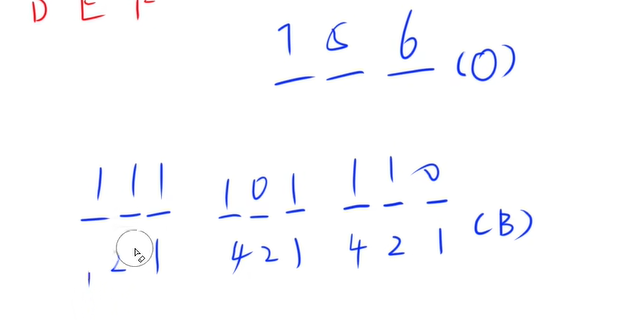 D E F
7 5 6 (O)
1 1 1 1 0 1 1 1 0
2 1 4 2 1 4 2 1 (B)